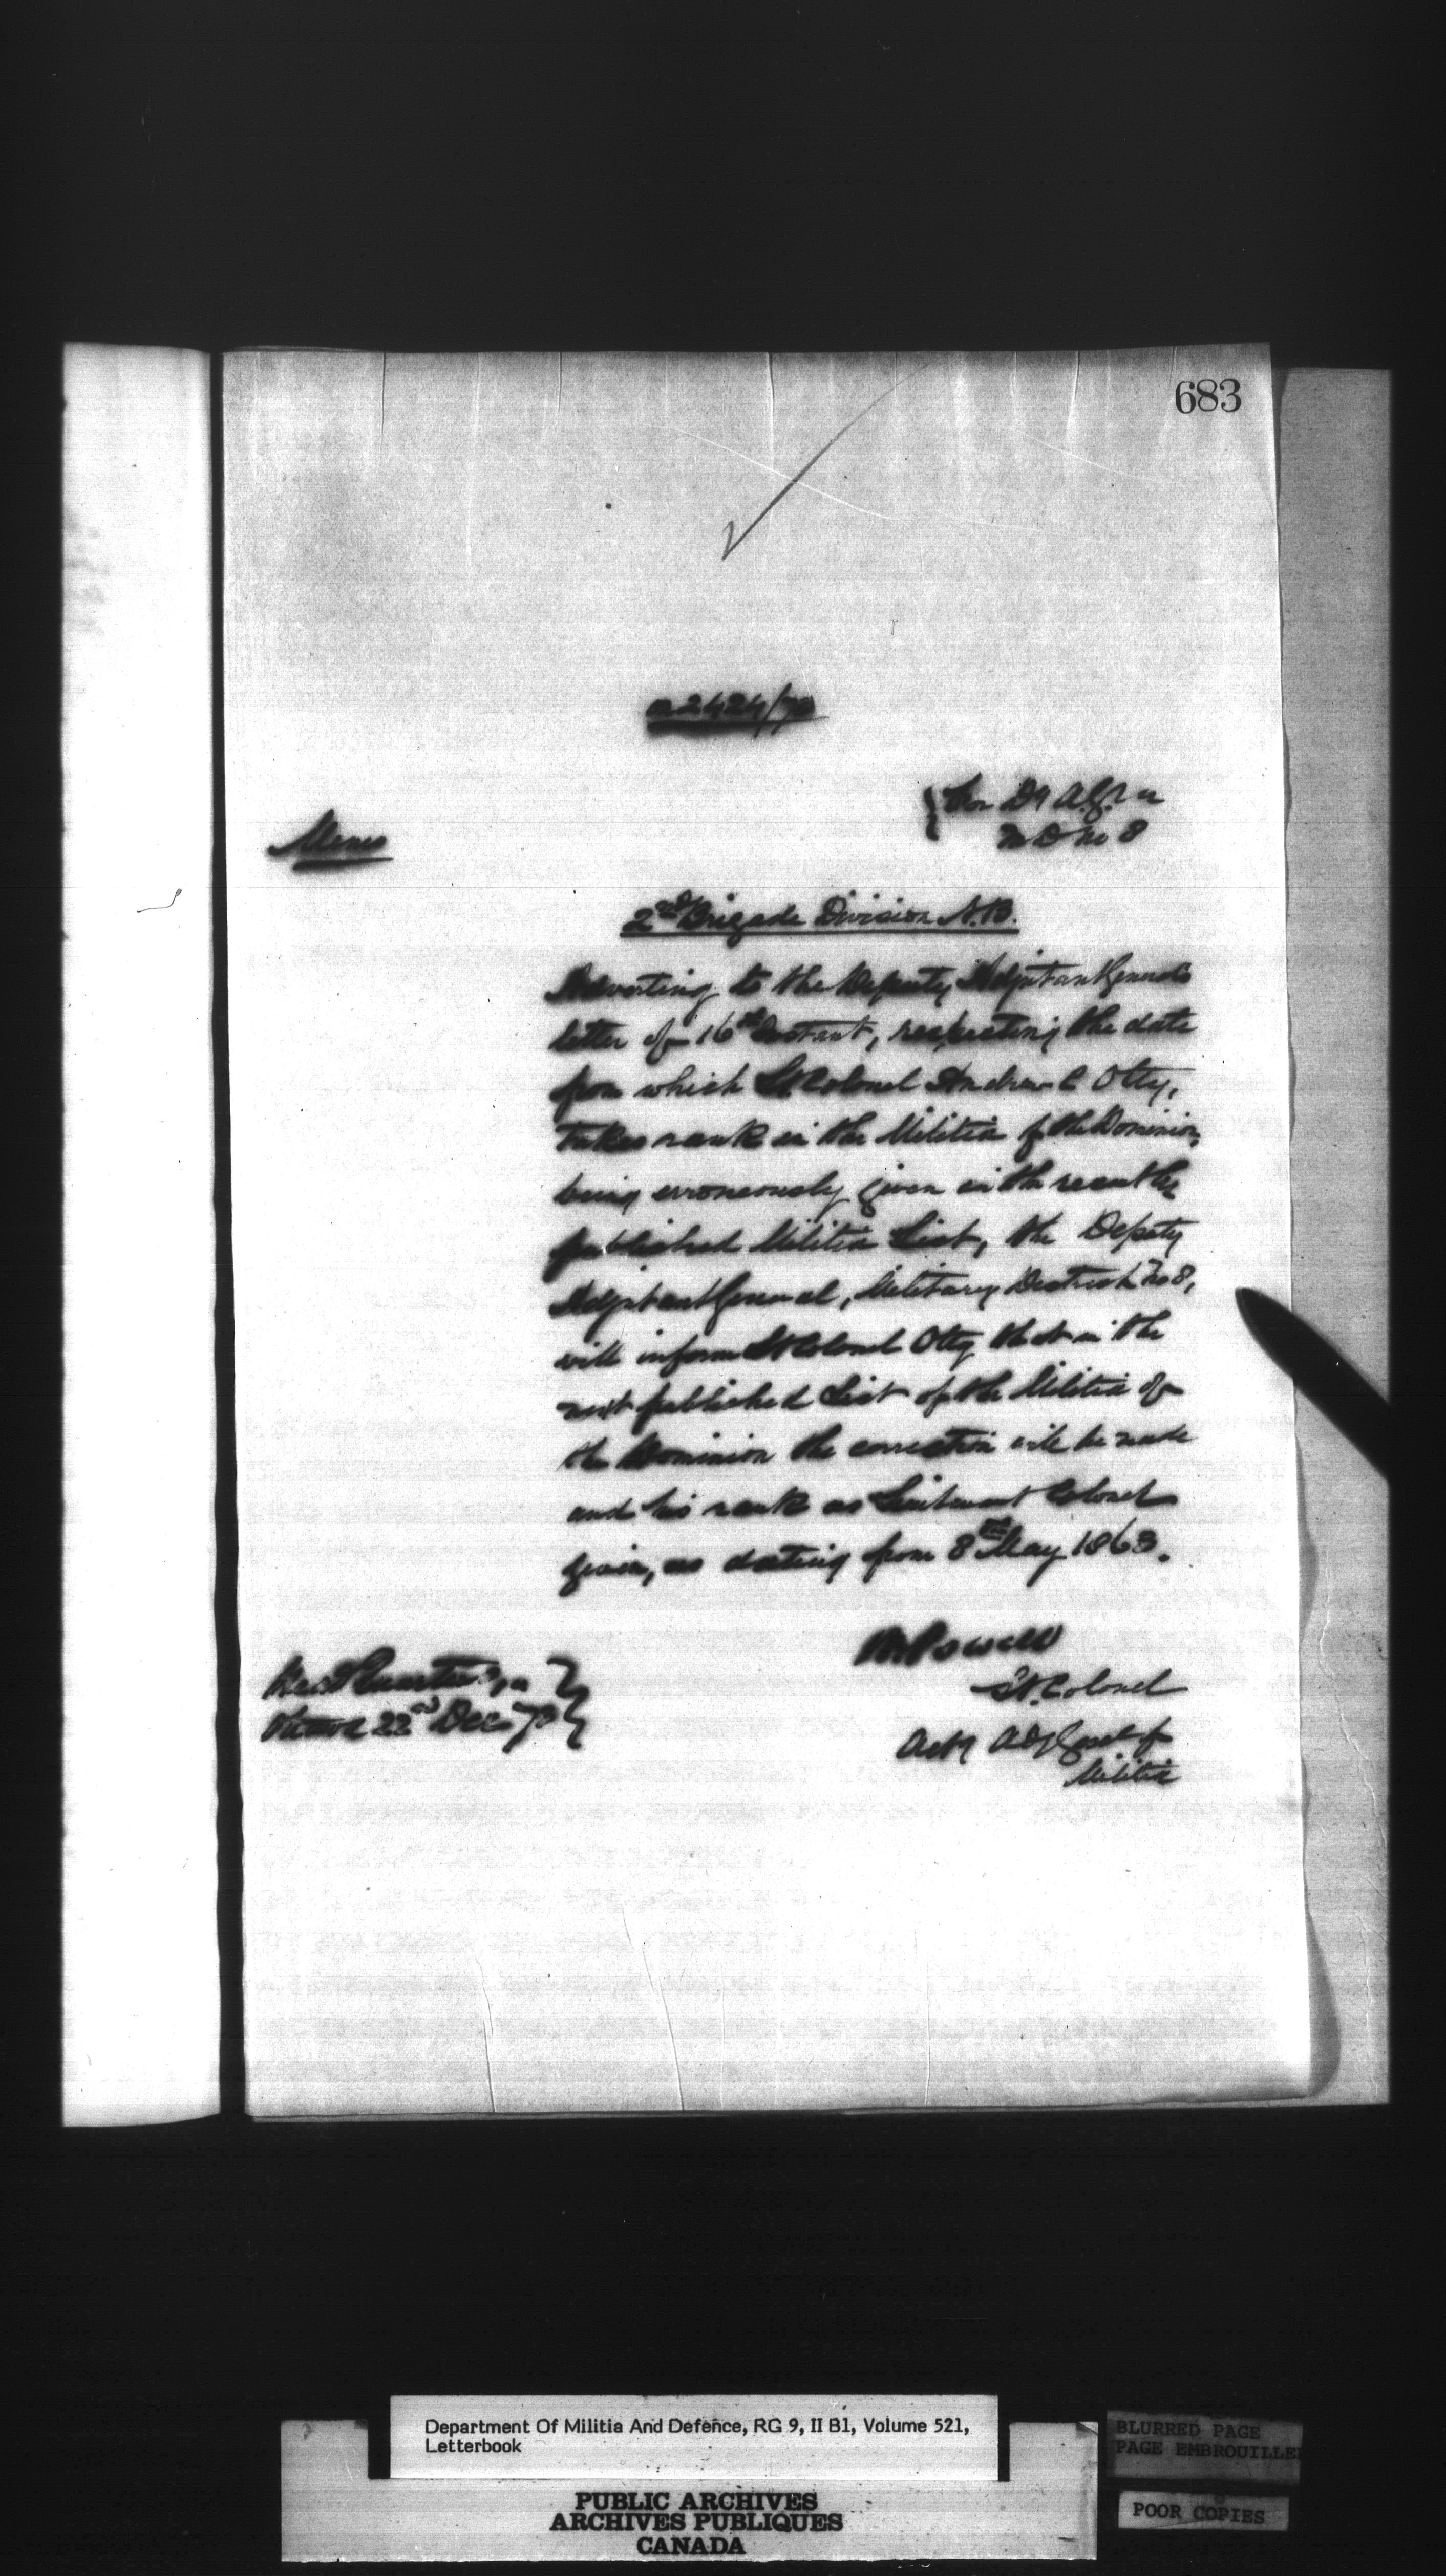 683
2424/73
For Dy A.G. M
M D No 8
Memo
2nd Brigade Division N.B.
Adverting to the Deputy Adjutant General's
letter of 16th Instant, respecting the date
from which Lt Colonel Andrew C Otty,
takes rank in the Militia of the Dominion,
being erroneously given in the recently
published Militia List, the Deputy
Adjutant General, Military District No 8,
will inform Lt Colonel Otty that in the
next published List of the Militia of
the Dominion the correction will be made
and his rank as Lieutenant Colonel
given, as dating from 8th May 1863.
W Powell
Lt. Colonel
Actg Adj Genl of
Militia
Head Quarters
Ottawa 22nd Dec 73
Department Of Militia And Defence, RG 9, II B1, Volume 521,
Letterbook
PUBLIC ARCHIVES
ARCHIVES PUBLIQUES
CANADA
BLURRED PAGE
PAGE EMBROUILLE
POOR COPIES